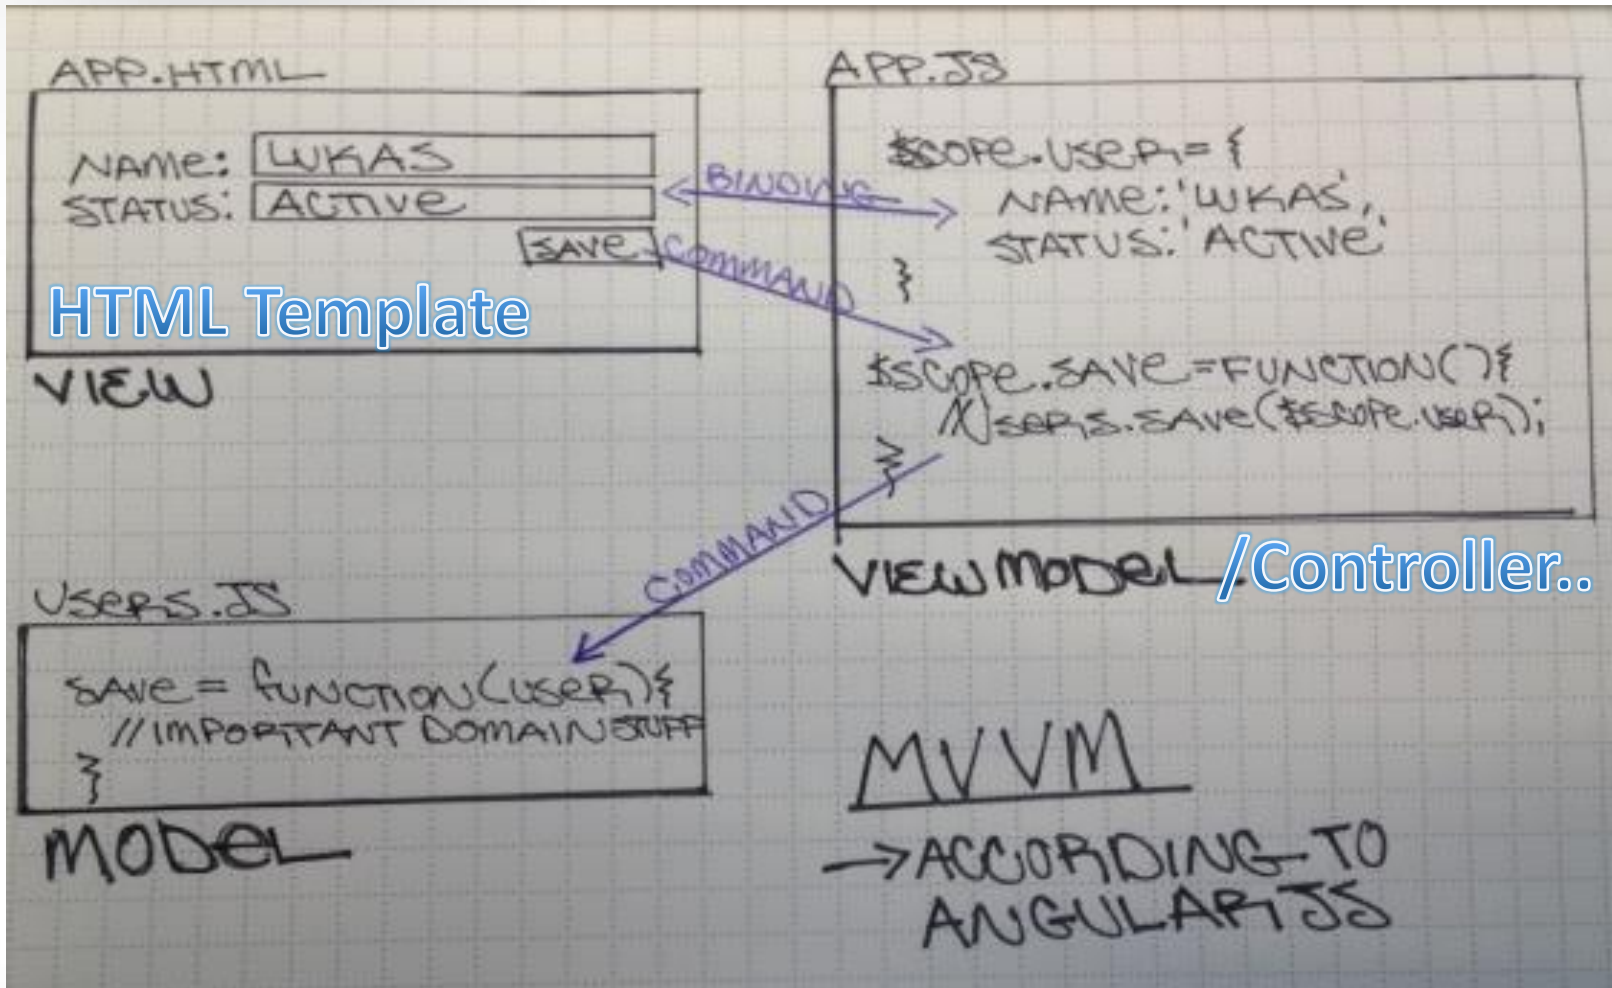 APP.HTML
NAME: LUKAS
STATUS: ACTIVE
SAVE
HTML Template
VIEW
BINDING
COMMAND
APP.JS
$SCOPE.USER = {
NAME: 'LUKAS',
STATUS: 'ACTIVE'
}
$SCOPE.SAVE = FUNCTION(){
USERS.SAVE($SCOPE.USER);
}
VIEWMODEL /Controller..
COMMAND
USERS.JS
SAVE = FUNCTION(USER){
//IMPORTANT DOMAIN STUFF
}
MODEL
MVVM
→ ACCORDING TO
ANGULARJS